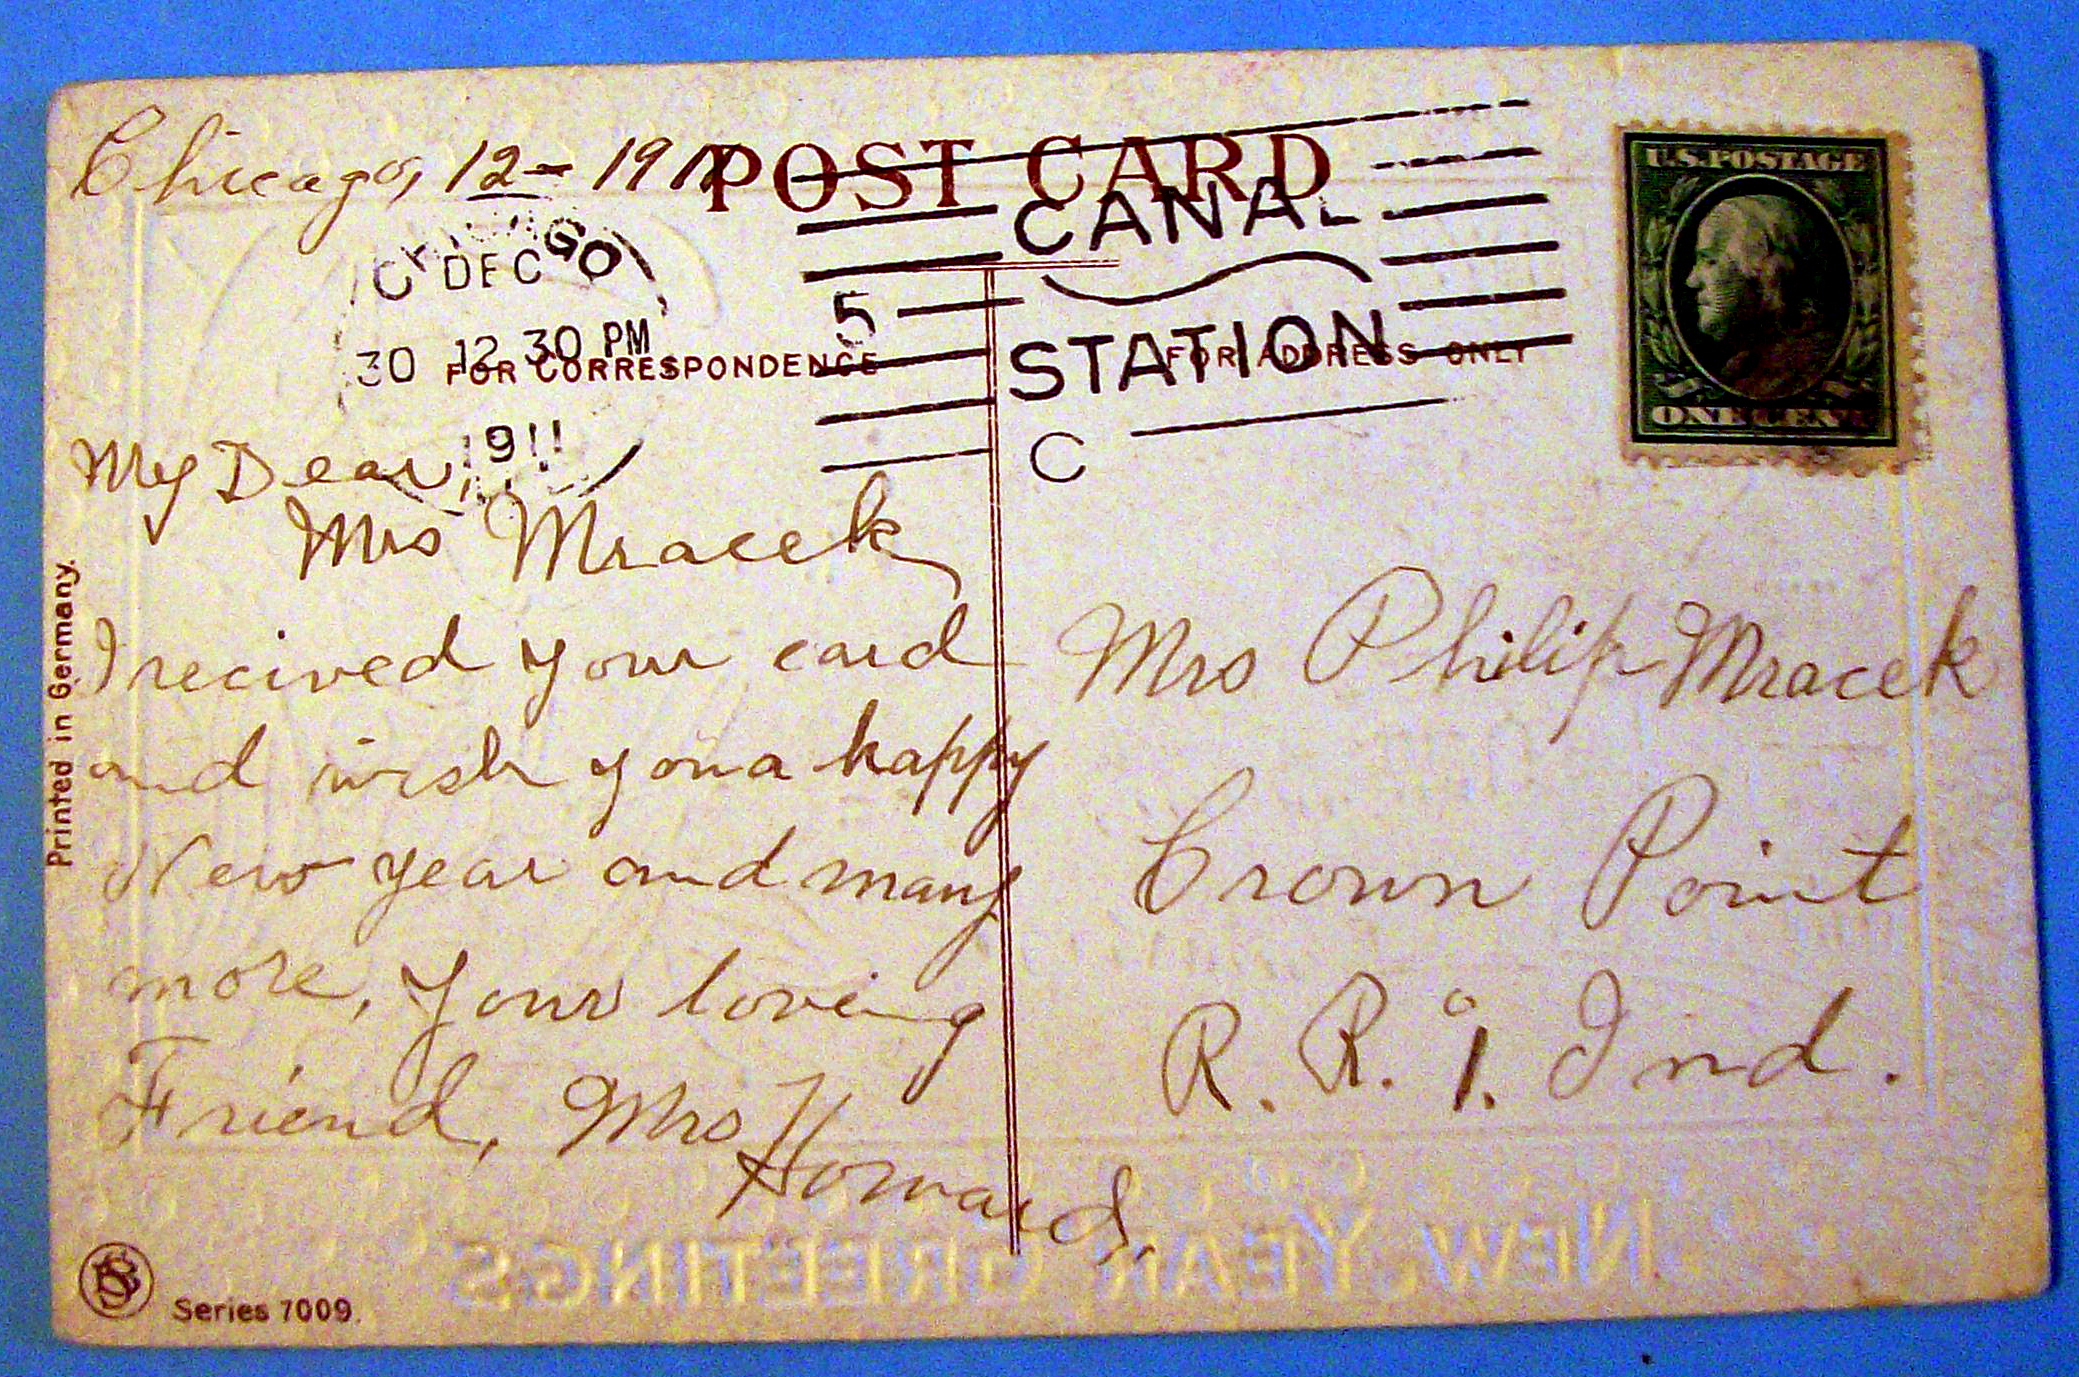 Chicago, 12 - 1911
POST CARD
CHICAGO
DEC
30 12 30 PM
1911
5
CANAL
STATION
C
U.S. POSTAGE
ONE CENT
FOR CORRESPONDENCE
FOR ADDRESS ONLY
My Dear,
Mrs Mracek
I recived your card
and wish you a happy
New year and many
more, Your loving
Friend, Mrs
Howard,
Mrs Philip Mracek
Crown Point
R. R. 1. Ind.
Printed in Germany.
Series 7009.
NEW YEAR GREETINGS